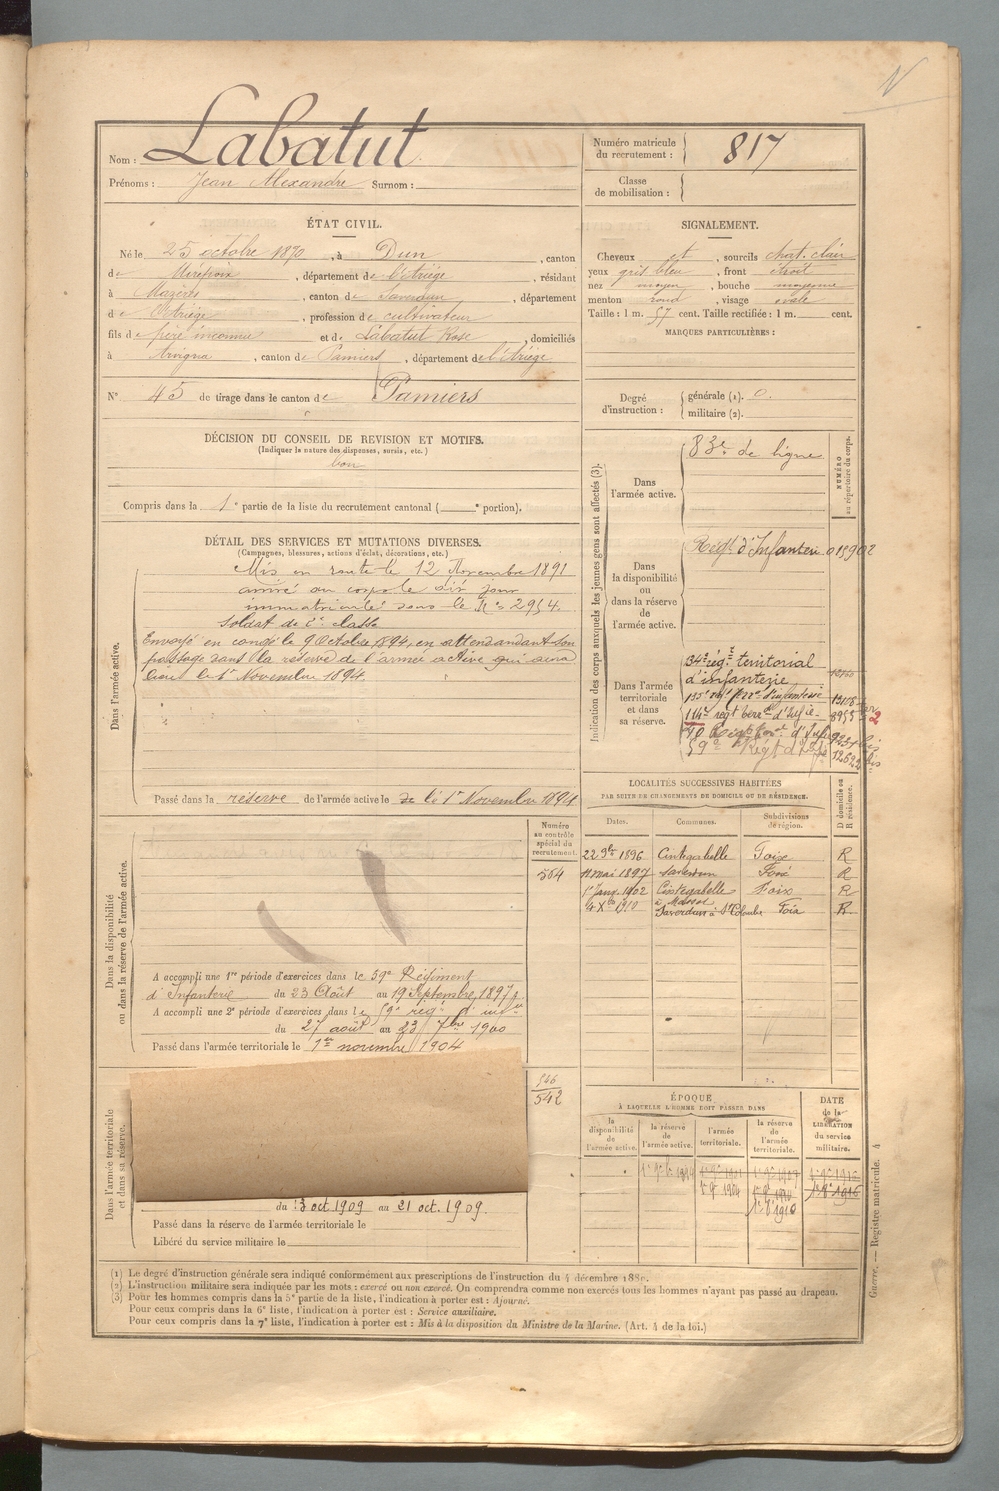 Nom : Labatut
Prénoms : Jean Alexandre Surnom :
Numéro matricule du recrutement : 817
Classe de mobilisation :
ÉTAT CIVIL.
Né le 25 octobre 1870, à Dun, canton
de Mirepoix, département de l'Ariège, résidant
à Mazères, canton de Saverdun, département
d e l'Ariège, profession de cultivateur
fils de père inconnu et de Labatut Rose, domiciliés
à Arvigna, canton de Pamiers, département de l'Ariège
N° 45 de tirage dans le canton de Pamiers
SIGNALEMENT.
Cheveux et, sourcils chat. clair
yeux gris bleu, front étroit
nez moyen, bouche moyenne
menton rond, visage ovale
Taille : 1 m. 57 cent. Taille rectifiée : 1 m. cent.
MARQUES PARTICULIÈRES :
Degré d'instruction : générale (1). 0.
militaire (2).
DÉCISION DU CONSEIL DE REVISION ET MOTIFS.
(Indiquer la nature des dispenses, sursis, etc.)
bon
Compris dans la 1e partie de la liste du recrutement cantonal ( e portion).
DÉTAIL DES SERVICES ET MUTATIONS DIVERSES.
(Campagnes, blessures, actions d'éclat, décorations, etc.)
Dans l'armée active.
Mis en route le 12 Novembre 1891
arrivé au corps le dit jour
immatriculé sous le N° 2954.
Soldat de 2e classe
Envoyé en congé le 9 Octobre 1894, en attendandant son
passage dans la réserve de l'armée active qui aura
lieu le 1r Novembre 1894.
Passé dans la réserve de l'armée active le 1r Novembre 1894
Indication des corps auxquels les jeunes gens sont affectés (3).
NUMÉRO au répertoire du corps.
Dans l'armée active.
83e de ligne
Dans la disponibilité ou dans la réserve de l'armée active.
Régt d'Infanterie 015902
Dans l'armée territoriale et dans sa réserve.
34e régt territorial
d'infanterie
114e régt terral d'Infie
59e Régt d'Infie
LOCALITÉS SUCCESSIVES HABITÉES
PAR SUITE DE CHANGEMENTS DE DOMICILE OU DE RÉSIDENCE.
Dates. Communes. Subdivisions de région. D domicile ou R résidence.
22 9bre 1896 Cintegabelle Foix R
11 mai 1897 Saverdun Foix R
1r Janv. 1902 Cintegabelle Foix R
4 Xbre 1910 Saverdun à Ste Colombe Foix R
Numéro au contrôle spécial du recrutement.
564
Dans la disponibilité ou dans la réserve de l'armée active.
A accompli une 1re période d'exercices dans le 59e Régiment
d'Infanterie du 23 Août au 19 Septembre 1897
A accompli une 2e période d'exercices dans le 59e régt d'infie
du 27 août au 23 7bre 1900
Passé dans l'armée territoriale le 1er novembre 1904
Dans l'armée territoriale et dans sa réserve.
546
542
du 13 oct 1909 au 21 oct. 1909.
Passé dans la réserve de l'armée territoriale le
Libéré du service militaire le
ÉPOQUE
À LAQUELLE L'HOMME DOIT PASSER DANS
la disponibilité de l'armée active. la réserve de l'armée active. l'armée territoriale. la réserve de l'armée territoriale.
DATE de la LIBÉRATION du service militaire.
(1) Le degré d'instruction générale sera indiqué conformément aux prescriptions de l'instruction du 4 décembre 1889.
(2) L'instruction militaire sera indiquée par les mots : exercé ou non exercé. On comprendra comme non exercés tous les hommes n'ayant pas passé au drapeau.
(3) Pour les hommes compris dans la 5e partie de la liste, l'indication à porter est : Ajourné.
Pour ceux compris dans la 6e liste, l'indication à porter est : Service auxiliaire.
Pour ceux compris dans la 7e liste, l'indication à porter est : Mis à la disposition du Ministre de la Marine. (Art. 4 de la loi.)
Guerre. — Registre matricule. 4